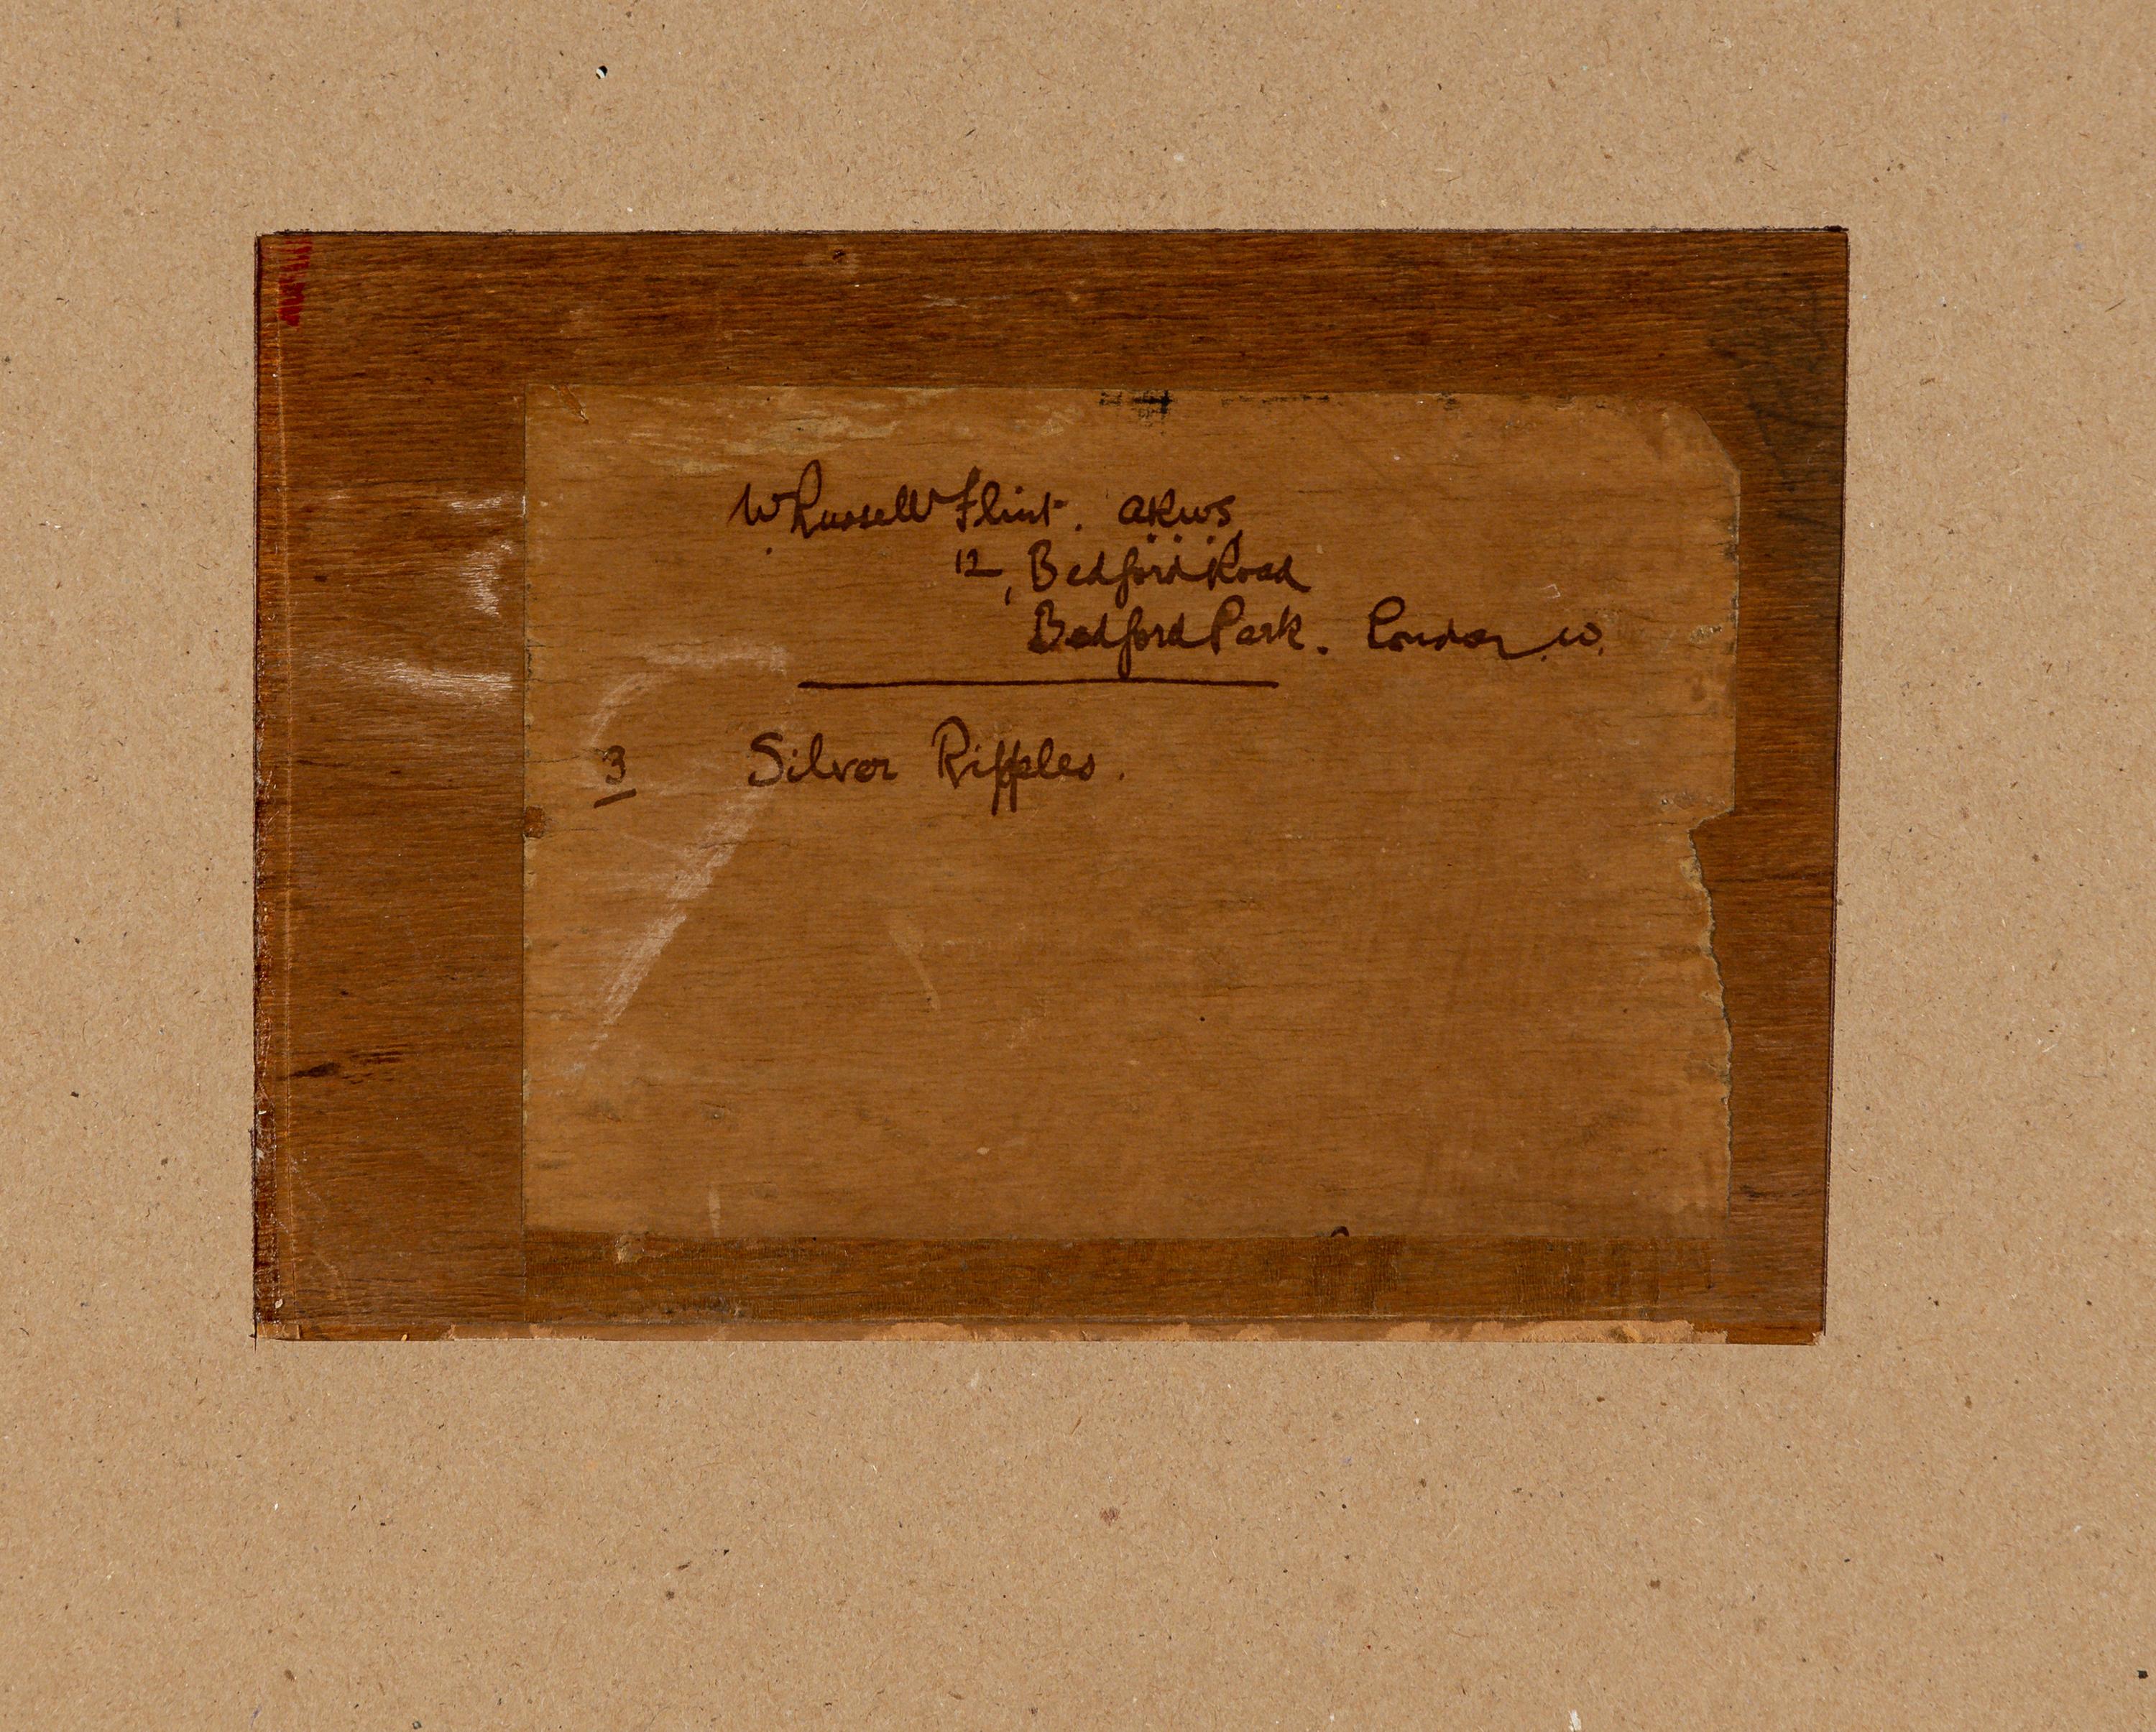 W Russell Flint. ARWS
12, Bedford Road
Bedford Park. London W.
3 Silver Ripples.